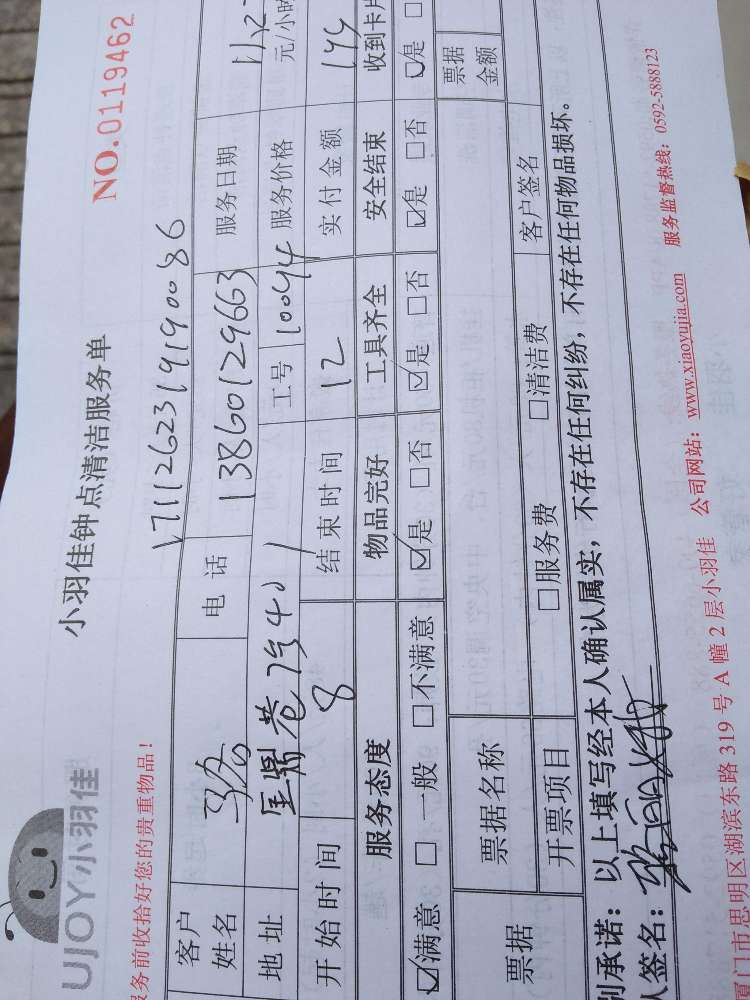 UJOY小羽佳
小羽佳钟点清洁服务单
NO.0119462
务前收拾好您的贵重物品!
1711262319190086
客户姓名 电话 13860129663 服务日期 11.27
地址 401 工号 10094 服务价格 元/小时
开始时间 8 结束时间 12 实付金额 144
服务态度 物品完好 工具齐全 安全结束 收到卡片
☑满意 □一般 □不满意 ☑是 □否 ☑是 □否 ☑是 □否 ☑是 □
票据 票据名称 票据金额
开票项目 □服务费 □清洁费 客户签名
别承诺:以上填写经本人确认属实,不存在任何纠纷,不存在任何物品损坏。
签名:
厦门市思明区湖滨东路319号A幢2层小羽佳 公司网站:www.xiaoyujia.com 服务监督热线:0592-5888123